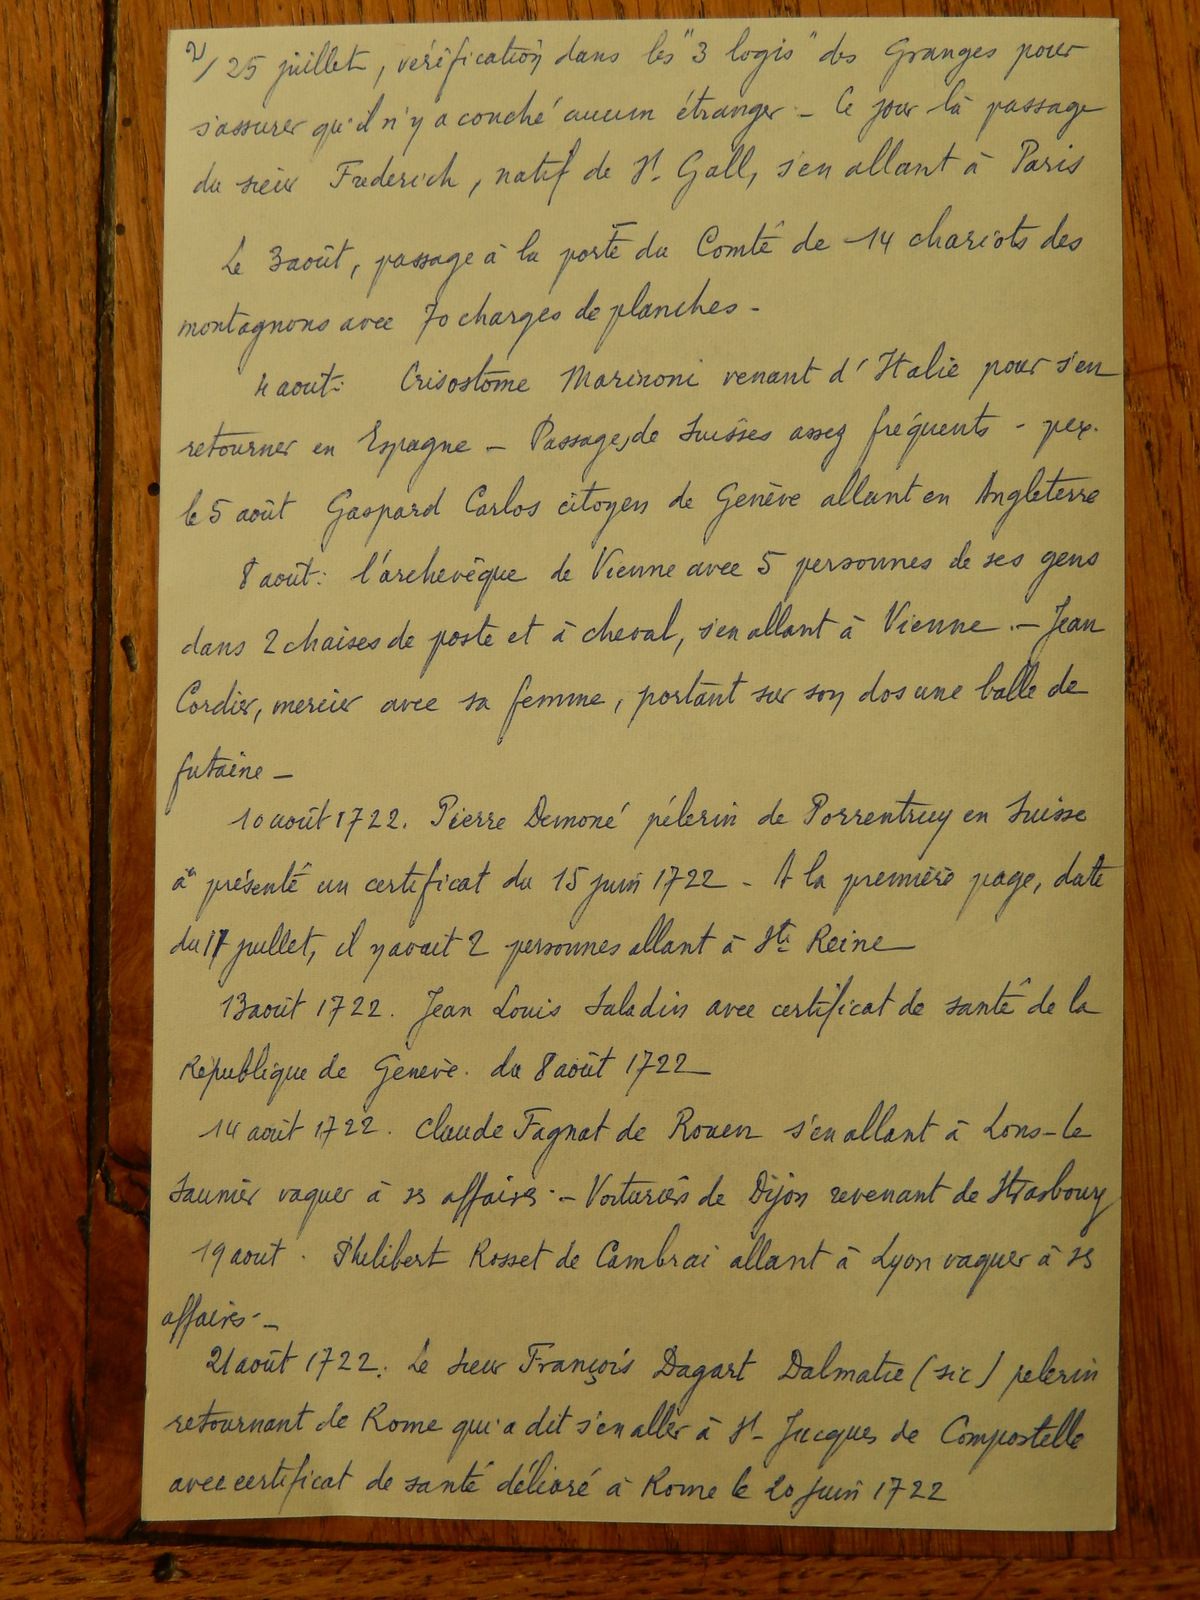 2/ 25 juillet, vérification dans les "3 logis" des Granges pour
s'assurer qu'il n'y a couché aucun étranger - Ce jour là passage
du sieur Frederich, natif de St. Gall, s'en allant à Paris
Le 3 août, passage à la porte du Comté de 14 chariots des
montagnons avec 70 charges de planches -
4 août: Crisostome Marinoni venant d'Italie pour s'en
retourner en Espagne - Passages de Suisses assez fréquents - p ex.
le 5 août Gaspard Carlos citoyen de Genève allant en Angleterre
8 août: l'archevêque de Vienne avec 5 personnes de ses gens
dans 2 chaises de poste et à cheval, s'en allant à Vienne. - Jean
Cordier, mercier avec sa femme, portant sur son dos une balle de
futaine -
10 août 1722. Pierre Demoné pélerin de Porrentruy en Suisse
a présenté un certificat du 15 juin 1722 - A la première page, date
du 17 juillet, il y avait 2 personnes allant à Ste Reine
13 août 1722. Jean Louis Saladin avec certificat de santé de la
République de Genève. du 8 août 1722
14 août 1722. Claude Fagnat de Rouen s'en allant à Lons-le
Saunier vaquer à ses affaires - Voituriers de Dijon revenant de Strasbourg
19 aout. Philibert Rosset de Cambrai allant à Lyon vaquer à ses
affaires -
21 août 1722: Le sieur François Dagart Dalmatie (sic) pelerin
retournant de Rome qui a dit s'en aller à St Jacques de Compostelle
avec certificat de santé délivré à Rome le 20 juin 1722